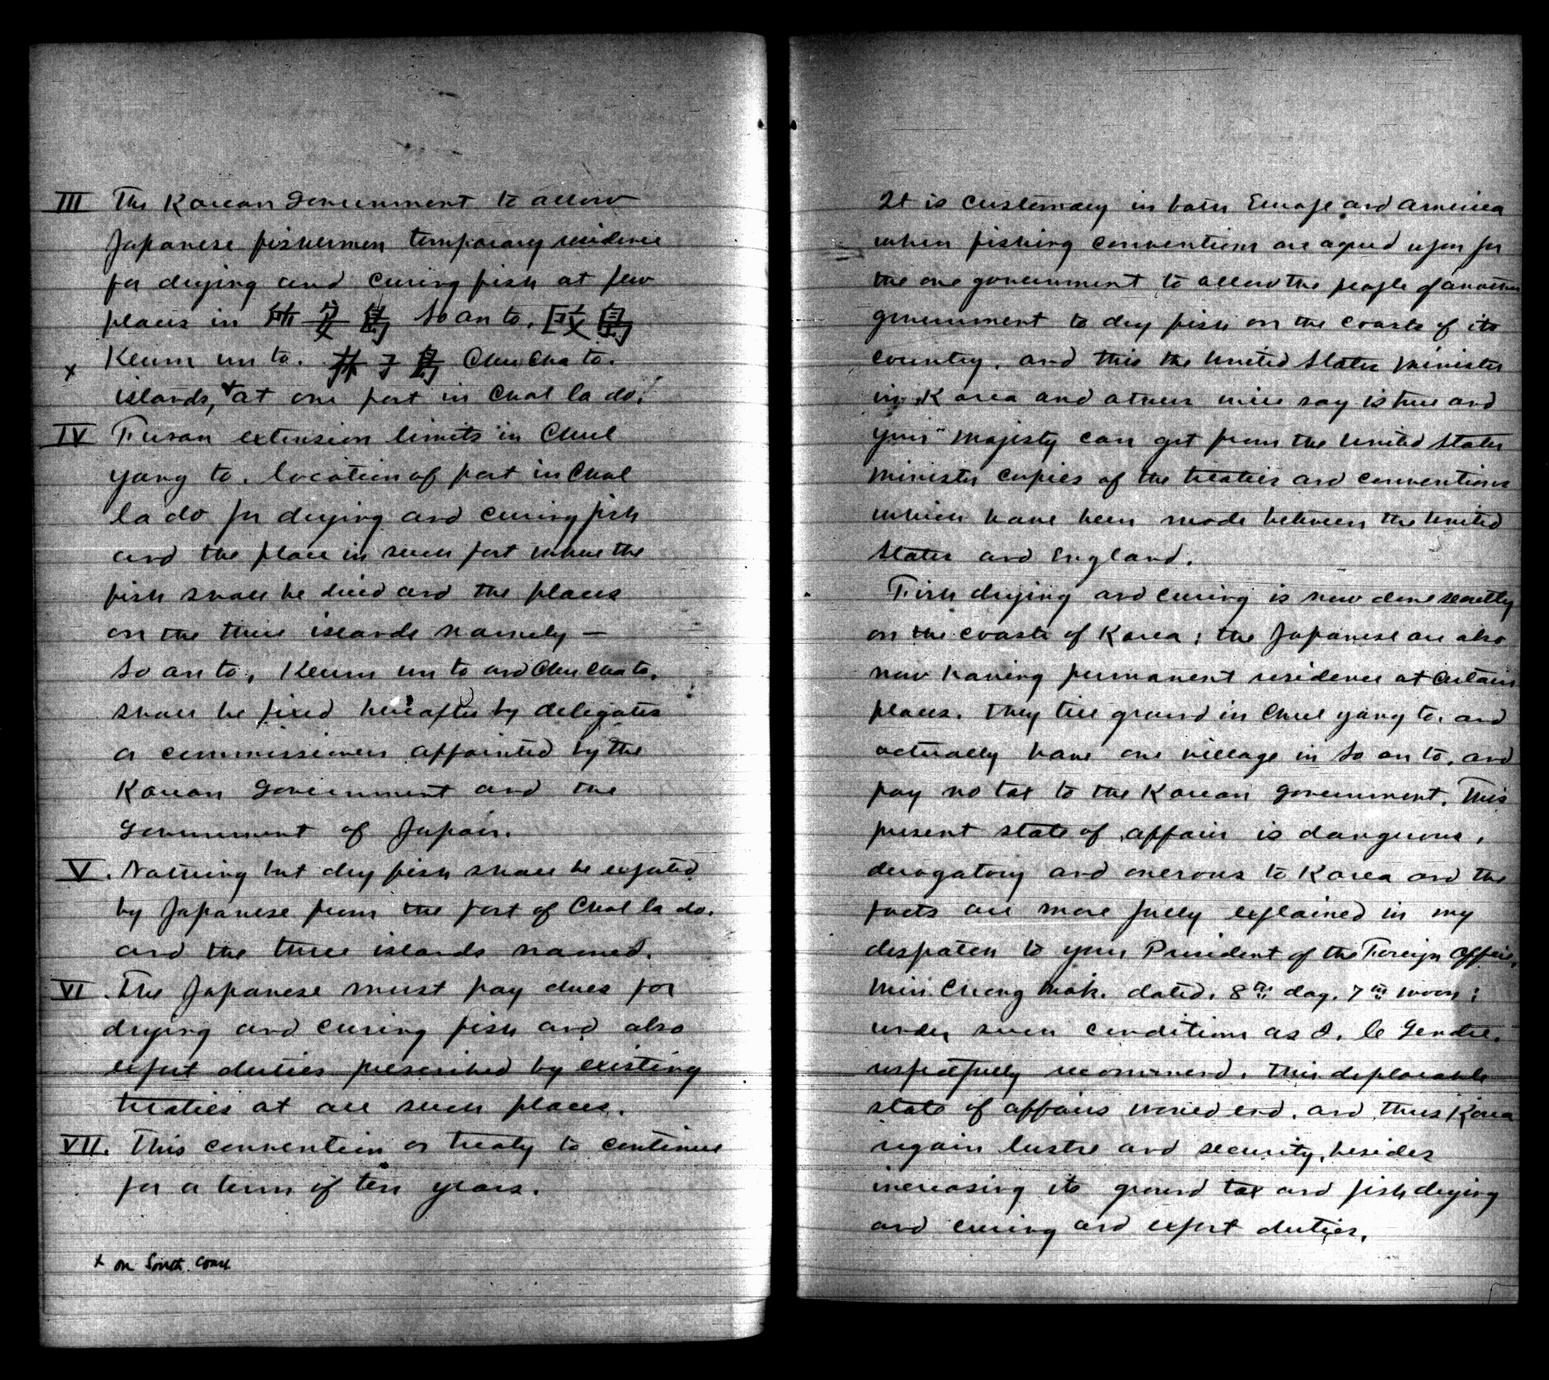 III The Korean Government to allow
Japanese fishermen temporary residence
for drying and curing fish at few
places in 所安島 So an to,
Keum un to. 楸子島 Chu Cha to.
x islands, & at one port in Chul la do.
IV Fusan extension limits in Chul
yang to. location of port in Chul
la do for drying and curing fish
and the place in such port where the
fish shall be dried and the places
on the three islands namely —
So an to, Keum un to and Chu Cha to.
shall be fixed hereafter by delegates
or commissioners appointed by the
Korean Government and the
Government of Japan.
V. Nothing but dry fish shall be exported
by Japanese from the port of Chul la do.
and the three islands named.
VI The Japanese must pay dues for
drying and curing fish and also
export duties prescribed by existing
treaties at all such places.
VII. This convention or treaty to continue
for a term of ten years.
x on South Coast
It is customary in both Europe and America
when fishing conventions are agreed upon for
the one government to allow the people of another
government to dry fish on the coasts of its
country, and this the United States Minister
in Korea and others will say is true and
your majesty can get from the United States
Minister copies of the treaties and conventions
which have been made between the United
States and England.
Fish drying and curing is now done secretly
on the coasts of Korea; the Japanese are also
now having permanent residence at certain
places. They till ground in Chul yang to. and
actually have one village in So an to, and
pay no tax to the Korean government. This
present state of affairs is dangerous,
derogatory and onerous to Korea and the
facts are more fully explained in my
dispatch to your President of the Foreign Office,
Min Chong Mok. dated. 8th day. 7th moon:
under such conditions as I. le Gendre.
respectfully recommend, this deplorable
state of affairs would end. and thus Korea
regain lustre and security, besides
increasing its ground tax and fish drying
and curing and export duties.